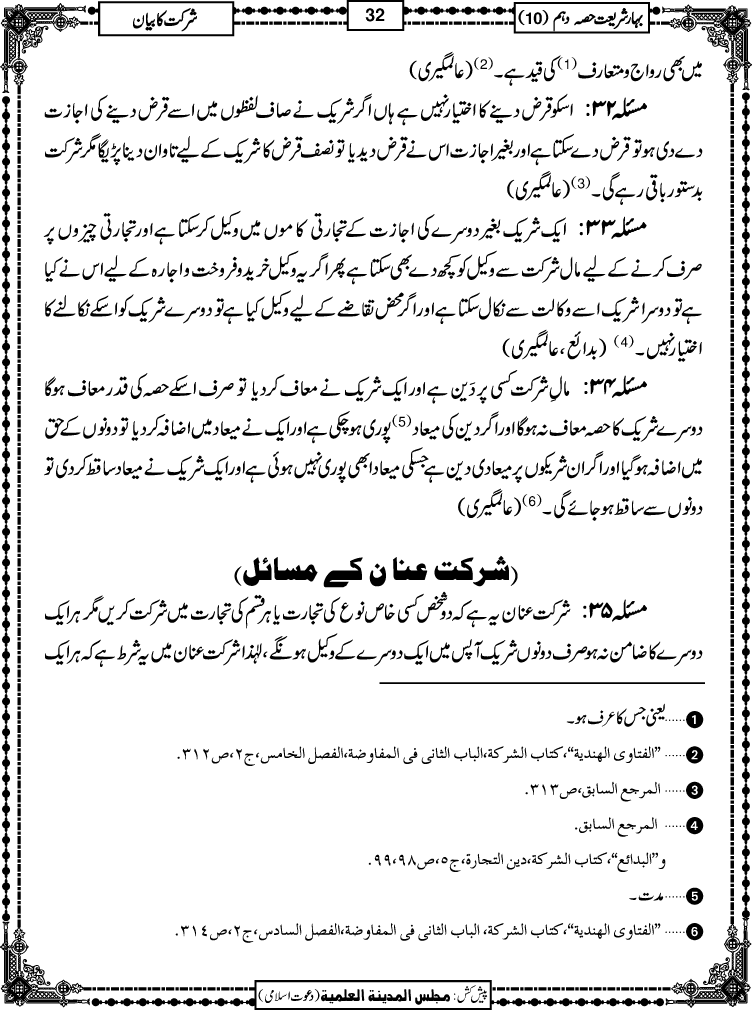 بہار شریعت حصہ دہم (10)
32
شرکت کا بیان
میں بھی رواج و متعارف (1) کی قید ہے۔ (2) (عالمگیری)
مسئلہ ۳۲: اسکو قرض دینے کا اختیار نہیں ہے ہاں اگر شریک نے صاف لفظوں میں اسے قرض دینے کی اجازت
دے دی ہو تو قرض دے سکتا ہے اور بغیر اجازت اس نے قرض دیدیا تو نصف قرض کا شریک کے لیے تاوان دینا پڑیگا مگر شرکت
بدستور باقی رہے گی۔ (3) (عالمگیری)
مسئلہ ۳۳: ایک شریک بغیر دوسرے کی اجازت کے تجارتی کاموں میں وکیل کر سکتا ہے اور تجارتی چیزوں پر
صرف کرنے کے لیے مال شرکت سے وکیل کو کچھ دے بھی سکتا ہے پھر اگر یہ وکیل خرید و فروخت و اجارہ کے لیے اس نے کیا
ہے تو دوسرا شریک اسے وکالت سے نکال سکتا ہے اور اگر محض تقاضے کے لیے وکیل کیا ہے تو دوسرے شریک کو اسکے نکالنے کا
اختیار نہیں۔ (4) (بدائع، عالمگیری)
مسئلہ ۳۴: مالِ شرکت کسی پر دَین ہے اور ایک شریک نے معاف کر دیا تو صرف اسکے حصہ کی قدر معاف ہوگا
دوسرے شریک کا حصہ معاف نہ ہوگا اور اگر دین کی میعاد (5) پوری ہو چکی ہے اور ایک نے میعاد میں اضافہ کر دیا تو دونوں کے حق
میں اضافہ ہوگیا اور اگر ان شریکوں پر میعادی دین ہے جسکی میعاد ابھی پوری نہیں ہوئی ہے اور ایک شریک نے میعاد ساقط کر دی تو
دونوں سے ساقط ہو جائے گی۔ (6) (عالمگیری)
(شرکت عنان کے مسائل)
مسئلہ ۳۵: شرکت عنان یہ ہے کہ دو شخص کسی خاص نوع کی تجارت یا ہر قسم کی تجارت میں شرکت کریں مگر ہر ایک
دوسرے کا ضامن نہ ہو صرف دونوں شریک آپس میں ایک دوسرے کے وکیل ہونگے، لہٰذا شرکت عنان میں یہ شرط ہے کہ ہر ایک
1 ......یعنی جس کا عرف ہو۔
2 ...... ”الفتاوی الھندیة“، کتاب الشرکة، الباب الثانی فی المفاوضة، الفصل الخامس، ج٢، ص٣١٢.
3 ...... المرجع السابق، ص٣١٣.
4 ...... المرجع السابق.
و ”البدائع“، کتاب الشرکة، دین التجارة، ج٥، ص٩٨، ٩٩.
5 ......مدت۔
6 ...... ”الفتاوی الھندیة“، کتاب الشرکة، الباب الثانی فی المفاوضة، الفصل السادس، ج٢، ص٣١٤.
پیش کش: مجلس المدینة العلمیة (دعوت اسلامی)